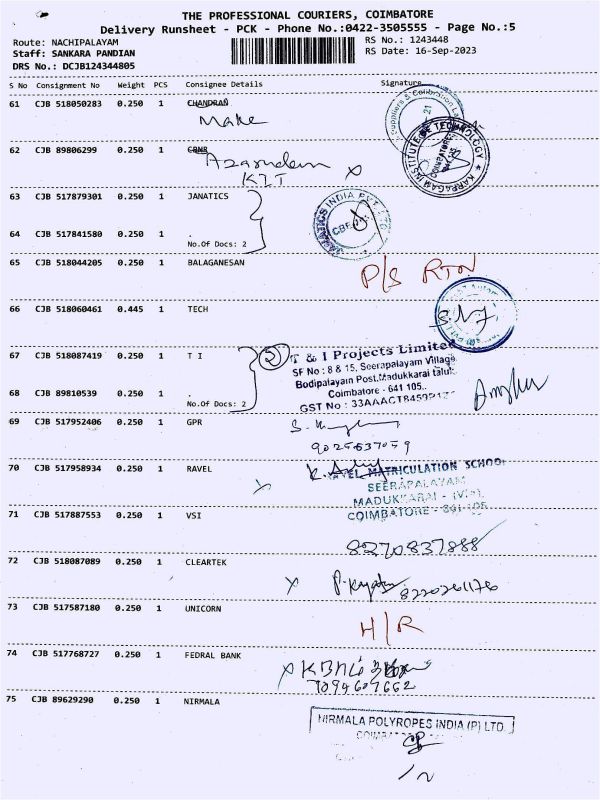 THE PROFESSIONAL COURIERS, COIMBATORE
Delivery Runsheet - PCK - Phone No.:0422-3505555 - Page No.:5
Route: NACHIPALAYAM
RS No.: 1243448
Staff: SANKARA PANDIAN
RS Date: 16-Sep-2023
DRS No.: DCJB124344805
S No Consignment No Weight PCS Consignee Details Signature
61 CJB 518050283 0.250 1 CHANDRAN
62 CJB 89806299 0.250 1
KARPAGAM INSTITUTE OF TECHNOLOGY
KIT
63 CJB 517879301 0.250 1 JANATICS
JANATICS INDIA PVT. LTD
CBE
64 CJB 517841580 0.250 1 .
No.Of Docs: 2
65 CJB 518044205 0.250 1 BALAGANESAN
P/S RTN
66 CJB 518060461 0.445 1 TECH
67 CJB 518087419 0.250 1 T I
2
T & I Projects Limited
SF No : 8 & 15, Seerapalayam Village
Bodipalayam Post, Madukkarai taluk.
Coimbatore - 641 105.
GST No :
68 CJB 89810539 0.250 1 .
No.Of Docs: 2
69 CJB 517952406 0.250 1 GPR
70 CJB 517958934 0.250 1 RAVEL
RAVEL MATRICULATION SCHOOL
SEERAPALAYAM
MADUKKARAI - (VIA),
COIMBATORE - 641 105
71 CJB 517887553 0.250 1 VSI
8270837888
72 CJB 518087089 0.250 1 CLEARTEK
8220261176
73 CJB 517587180 0.250 1 UNICORN
H/R
74 CJB 517768727 0.250 1 FEDRAL BANK
75 CJB 89629290 0.250 1 NIRMALA
NIRMALA POLYROPES INDIA (P) LTD.